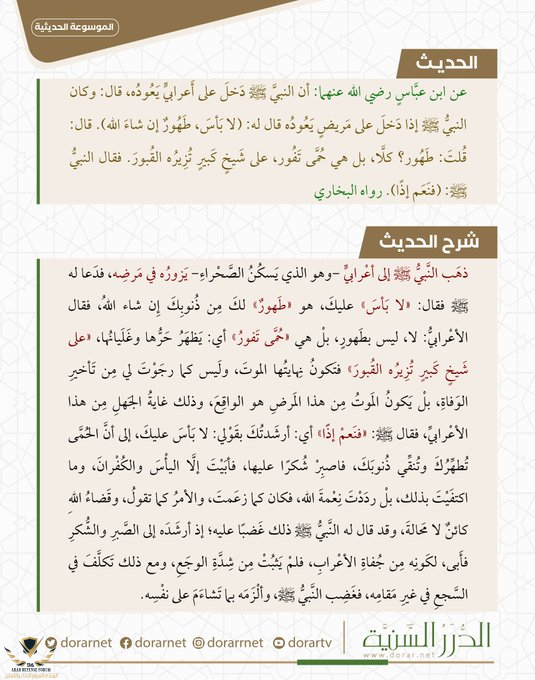 الموسوعة الحديثية
الحديث
عن ابن عبَّاسٍ رضي الله عنهما: أن النبيَّ ﷺ دَخلَ على أَعرابيٍّ يَعُودُه، قال: وكان
النبيُّ ﷺ إذا دَخلَ على مَريضٍ يَعُودُه قال له: (لا بَأسَ، طَهُورٌ إن شاءَ الله). قال:
قُلتَ: طَهُور؟ كلَّا، بل هي حُمَّى تَفُور، على شَيخٍ كَبيرٍ تُزِيرُه القبورَ. فقال النبيُّ
ﷺ: (فنَعَم إذًا). رواه البخاري
شرح الحديث
ذهَب النَّبيُّ ﷺ إلى أعْرابيٍّ -وهو الذي يَسكُنُ الصَّحْراءِ- يَزورُه في مَرضِه، فدَعا له
ﷺ فقال: «لا بَأسَ» عليكَ، هو «طَهورٌ» لكَ مِن ذُنوبِكَ إن شاء اللهُ، فقال
الأعْرابيُّ: لا، ليس بِطَهورٍ، بلْ هي «حُمَّى تَفورُ» أي: يَظهَرُ حَرُّها وغَلَيانُها، «على
شَيخٍ كَبيرٍ تُزِيرُه القُبورَ» فتَكونُ نِهايتُها الموتَ، ولَيس كما رجَوْتَ لي مِن تَأخيرِ
الوَفاةِ، بلْ يَكونُ المَوتُ مِن هذا المَرضِ هو الواقِعَ، وذلك غايةُ الجَهلِ مِن هذا
الأعْرابيِّ، فقال ﷺ: «فنَعمْ إذًا» أي: أرشَدتُكَ بقَوْلي: لا بَأسَ عليكَ، إلى أنَّ الحُمَّى
تُطهِّرُكَ وتُنقِّي ذُنوبَكَ، فاصبِرْ شُكرًا عليها، فأبَيْتَ إلَّا اليأْسَ والكُفْرانَ، وما
اكتفَيْتَ بذلك، بلْ ردَدْتَ نِعْمةَ الله، فكان كما زعَمتَ، والأمرُ كما تقولُ، وقَضاءُ اللهِ
كائنٌ لا مَحالةَ، وقد قال له النَّبيُّ ﷺ ذلك غَضبًا عليه؛ إذ أرشَدَه إلى الصَّبرِ والشُّكرِ
فأَبى، لكَونِه مِن جُفاةِ الأعْرابِ، فلمْ يَثبُتْ مِن شِدَّةِ الوجَعِ، ومع ذلك تَكلَّفَ في
السَّجعِ في غيرِ مَقامِه، فغَضِب النَّبيُّ ﷺ، وألْزَمَه بما تَشاءَمَ على نفْسِه.
الدُّرَرُ السَّنِيَّة
www.dorar.net
dorartv
dorarrnet
dorarnet
dorarnet
ARAB DEFENSE FORUM